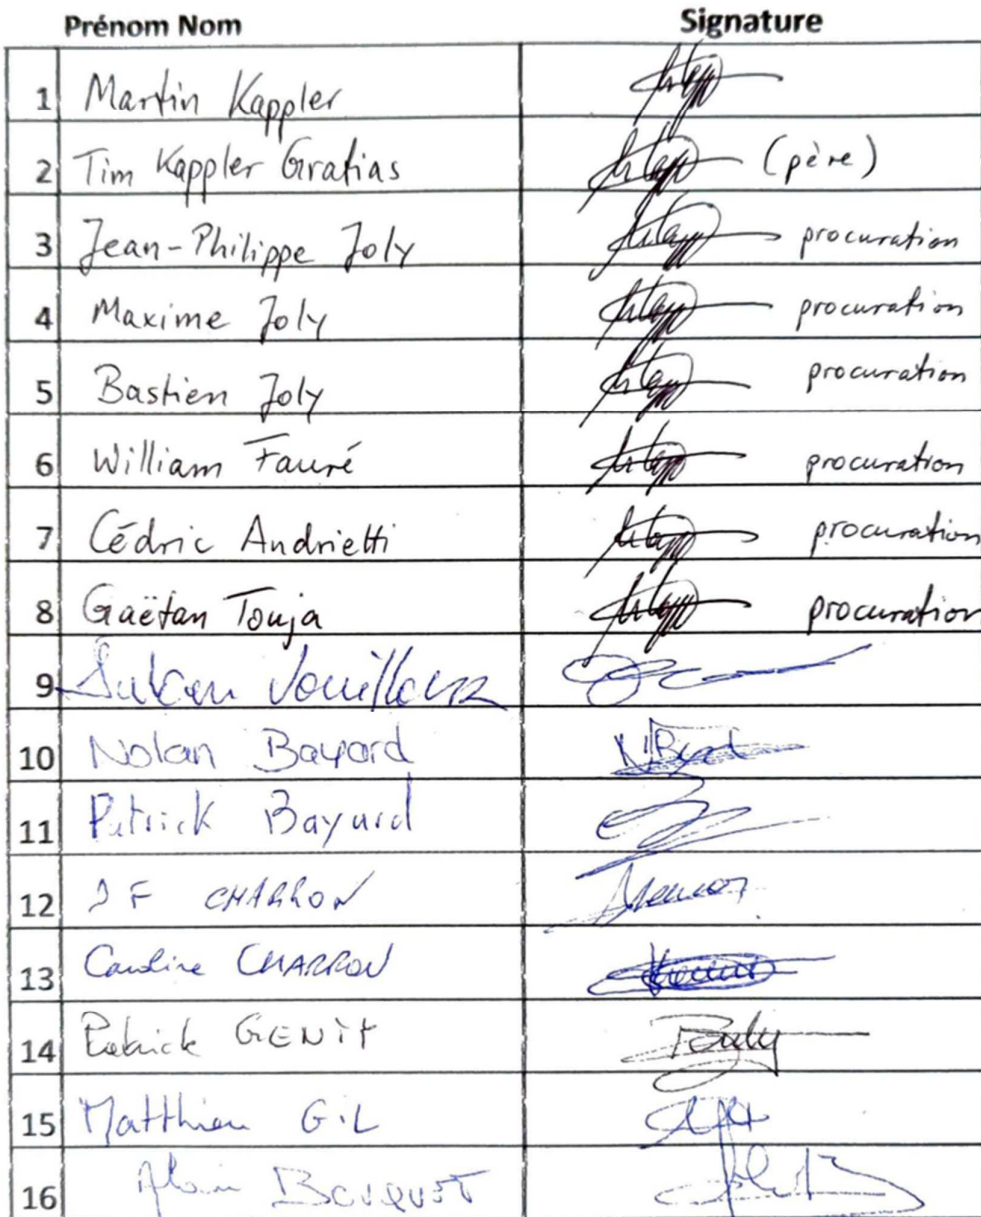 Prénom Nom Signature
1 Martin Kappler
2 Tim Kappler Gratias (père)
3 Jean-Philippe Joly procuration
4 Maxime Joly procuration
5 Bastien Joly procuration
6 William Fauré procuration
7 Cédric Andrietti procuration
8 Gaëtan Touja procuration
9
10 Nolan Bayard
11 Patrick Bayard
12 JF CHARRON
13 Caroline CHARRON
14 Patrick
15 Matthieu GiL
16 Alain BOUQUET